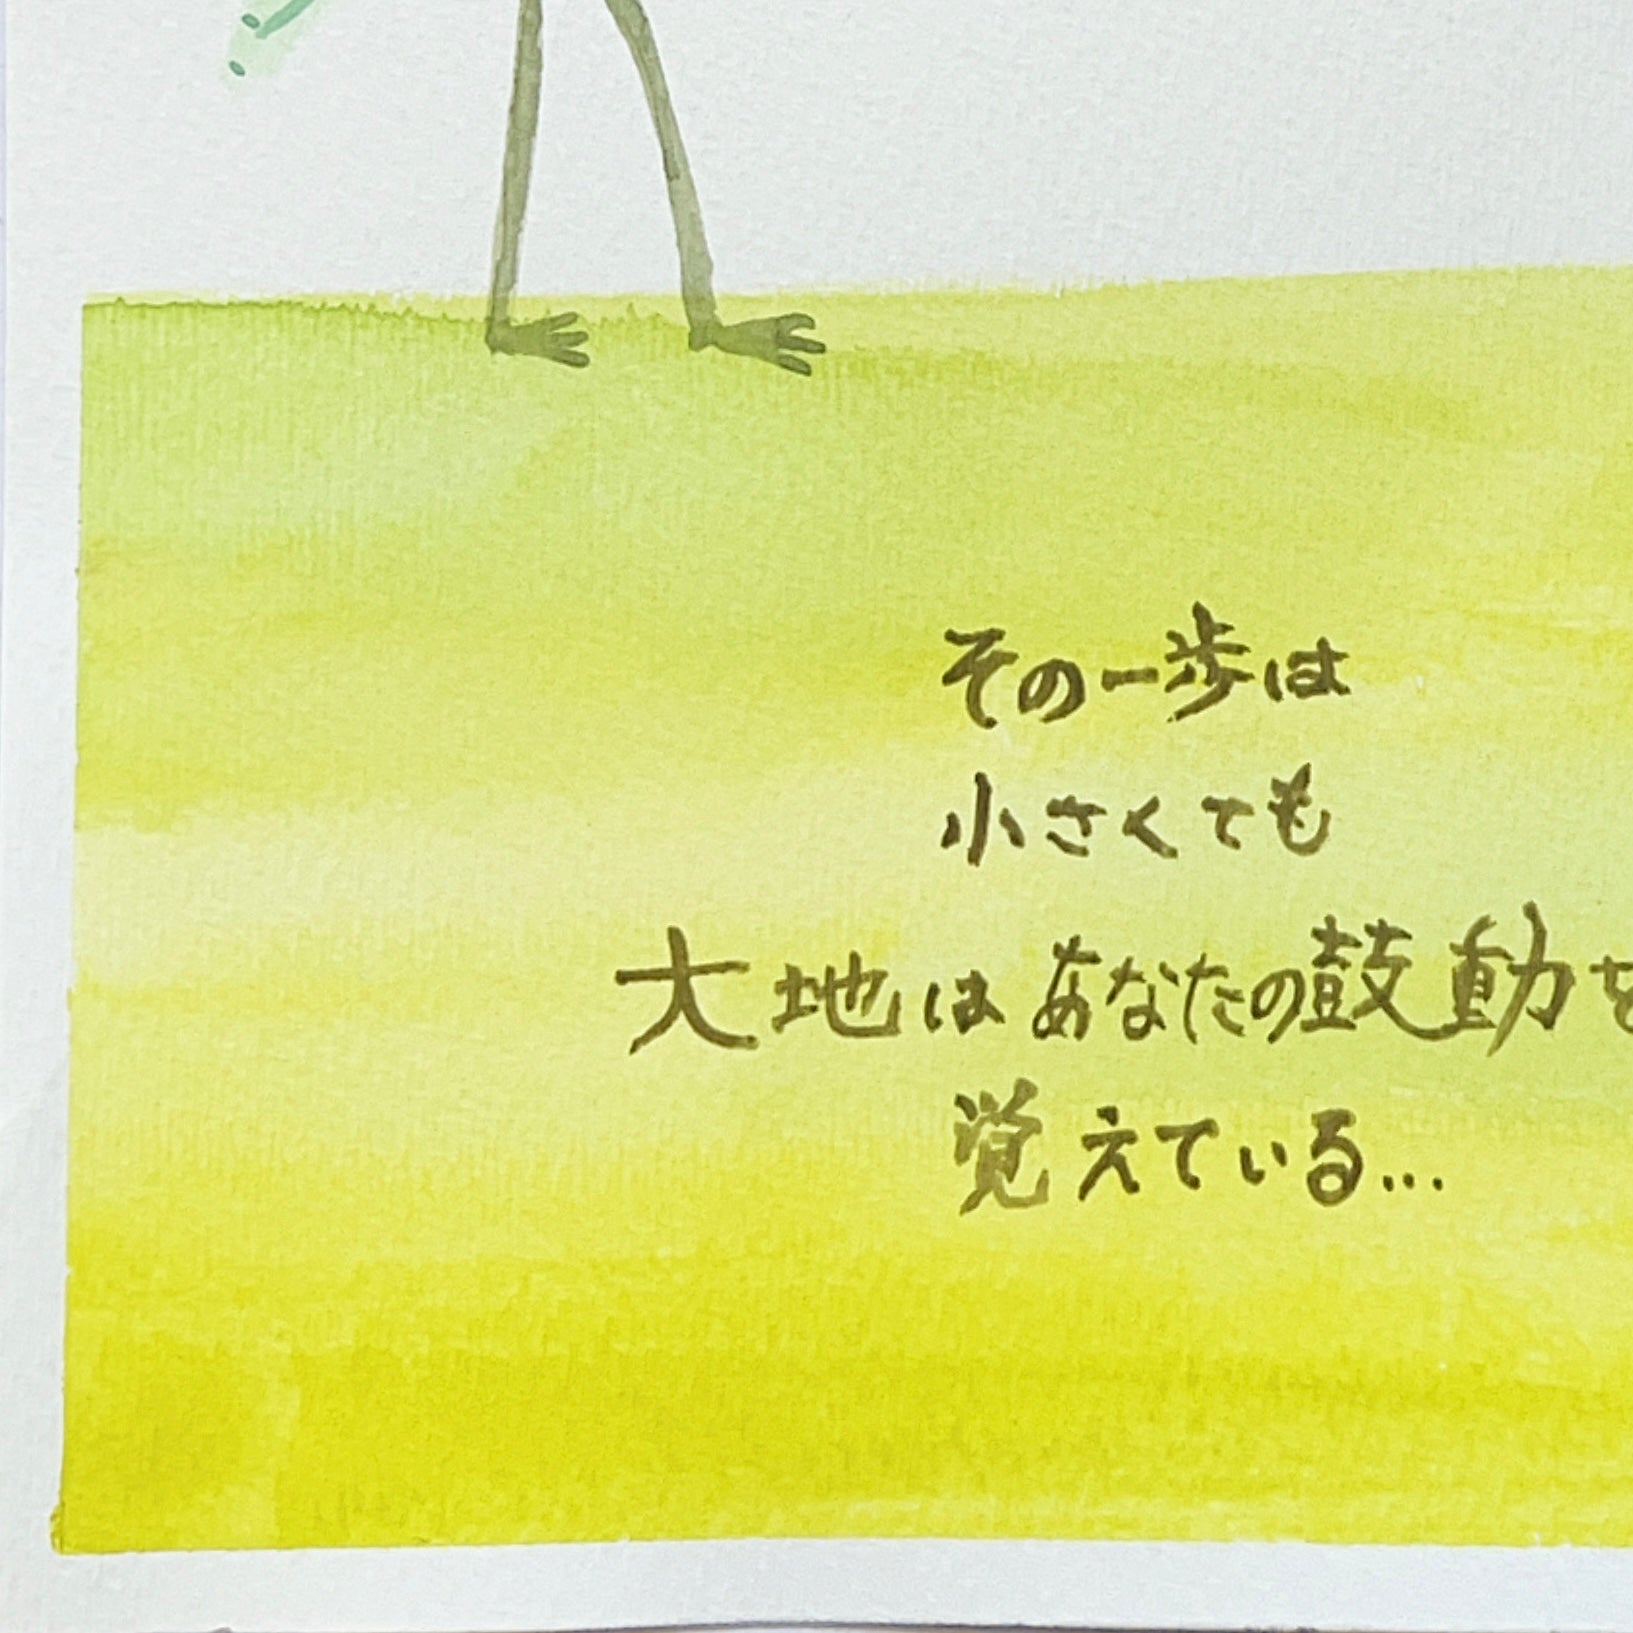 その一歩は
小さくても
大地はあなたの鼓動を
覚えている...